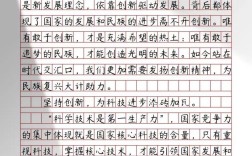 是新发展理念，依靠创新驱动发展。背后都体
现了国家的发展和民族的进步离不开创新。唯
有创新，才是充满希望的热土，唯有敢于
追梦的民族，才能创造光明的未来。如今站在
时代交汇口，我们更加需要发扬创新精神，为
民族复兴大计助力。
坚持创新，为科技进步添砖加瓦。
“科学技术是第一生产力”，国家竞争力
的集中体现就是国家核心科技的含量，只有重
视科技，掌握核心技术，才能引领国家发展和